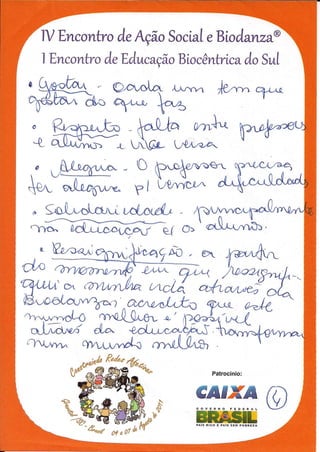 IV Encontro de Ação Social e Biodanza®
I Encontro de Educação Biocêntrica do Sul
• Gostar - Cada um tem que
gostar do que faz
• Respeito - falta entre professores
e alunos e vice versa
• Alegria - O professor precisa
ter alegria p/ vencer dificuldades
• Solidariedade - principalmente
na educação c/ os alunos.
• Ressignificação - a partir
do momento em que ressignifi-
quei a minha vida através da
Biodanza, acredito que este
mundo melhor é possível
através da educação transformar
num mundo melhor.
Construindo Redes Afetivas
Gramado, RS - Brasil 04 a 07 de Agosto de 2011
Patrocínio:
CAIXA
GOVERNO FEDERAL
BRASIL
PAÍS RICO É PAÍS SEM POBREZA
4